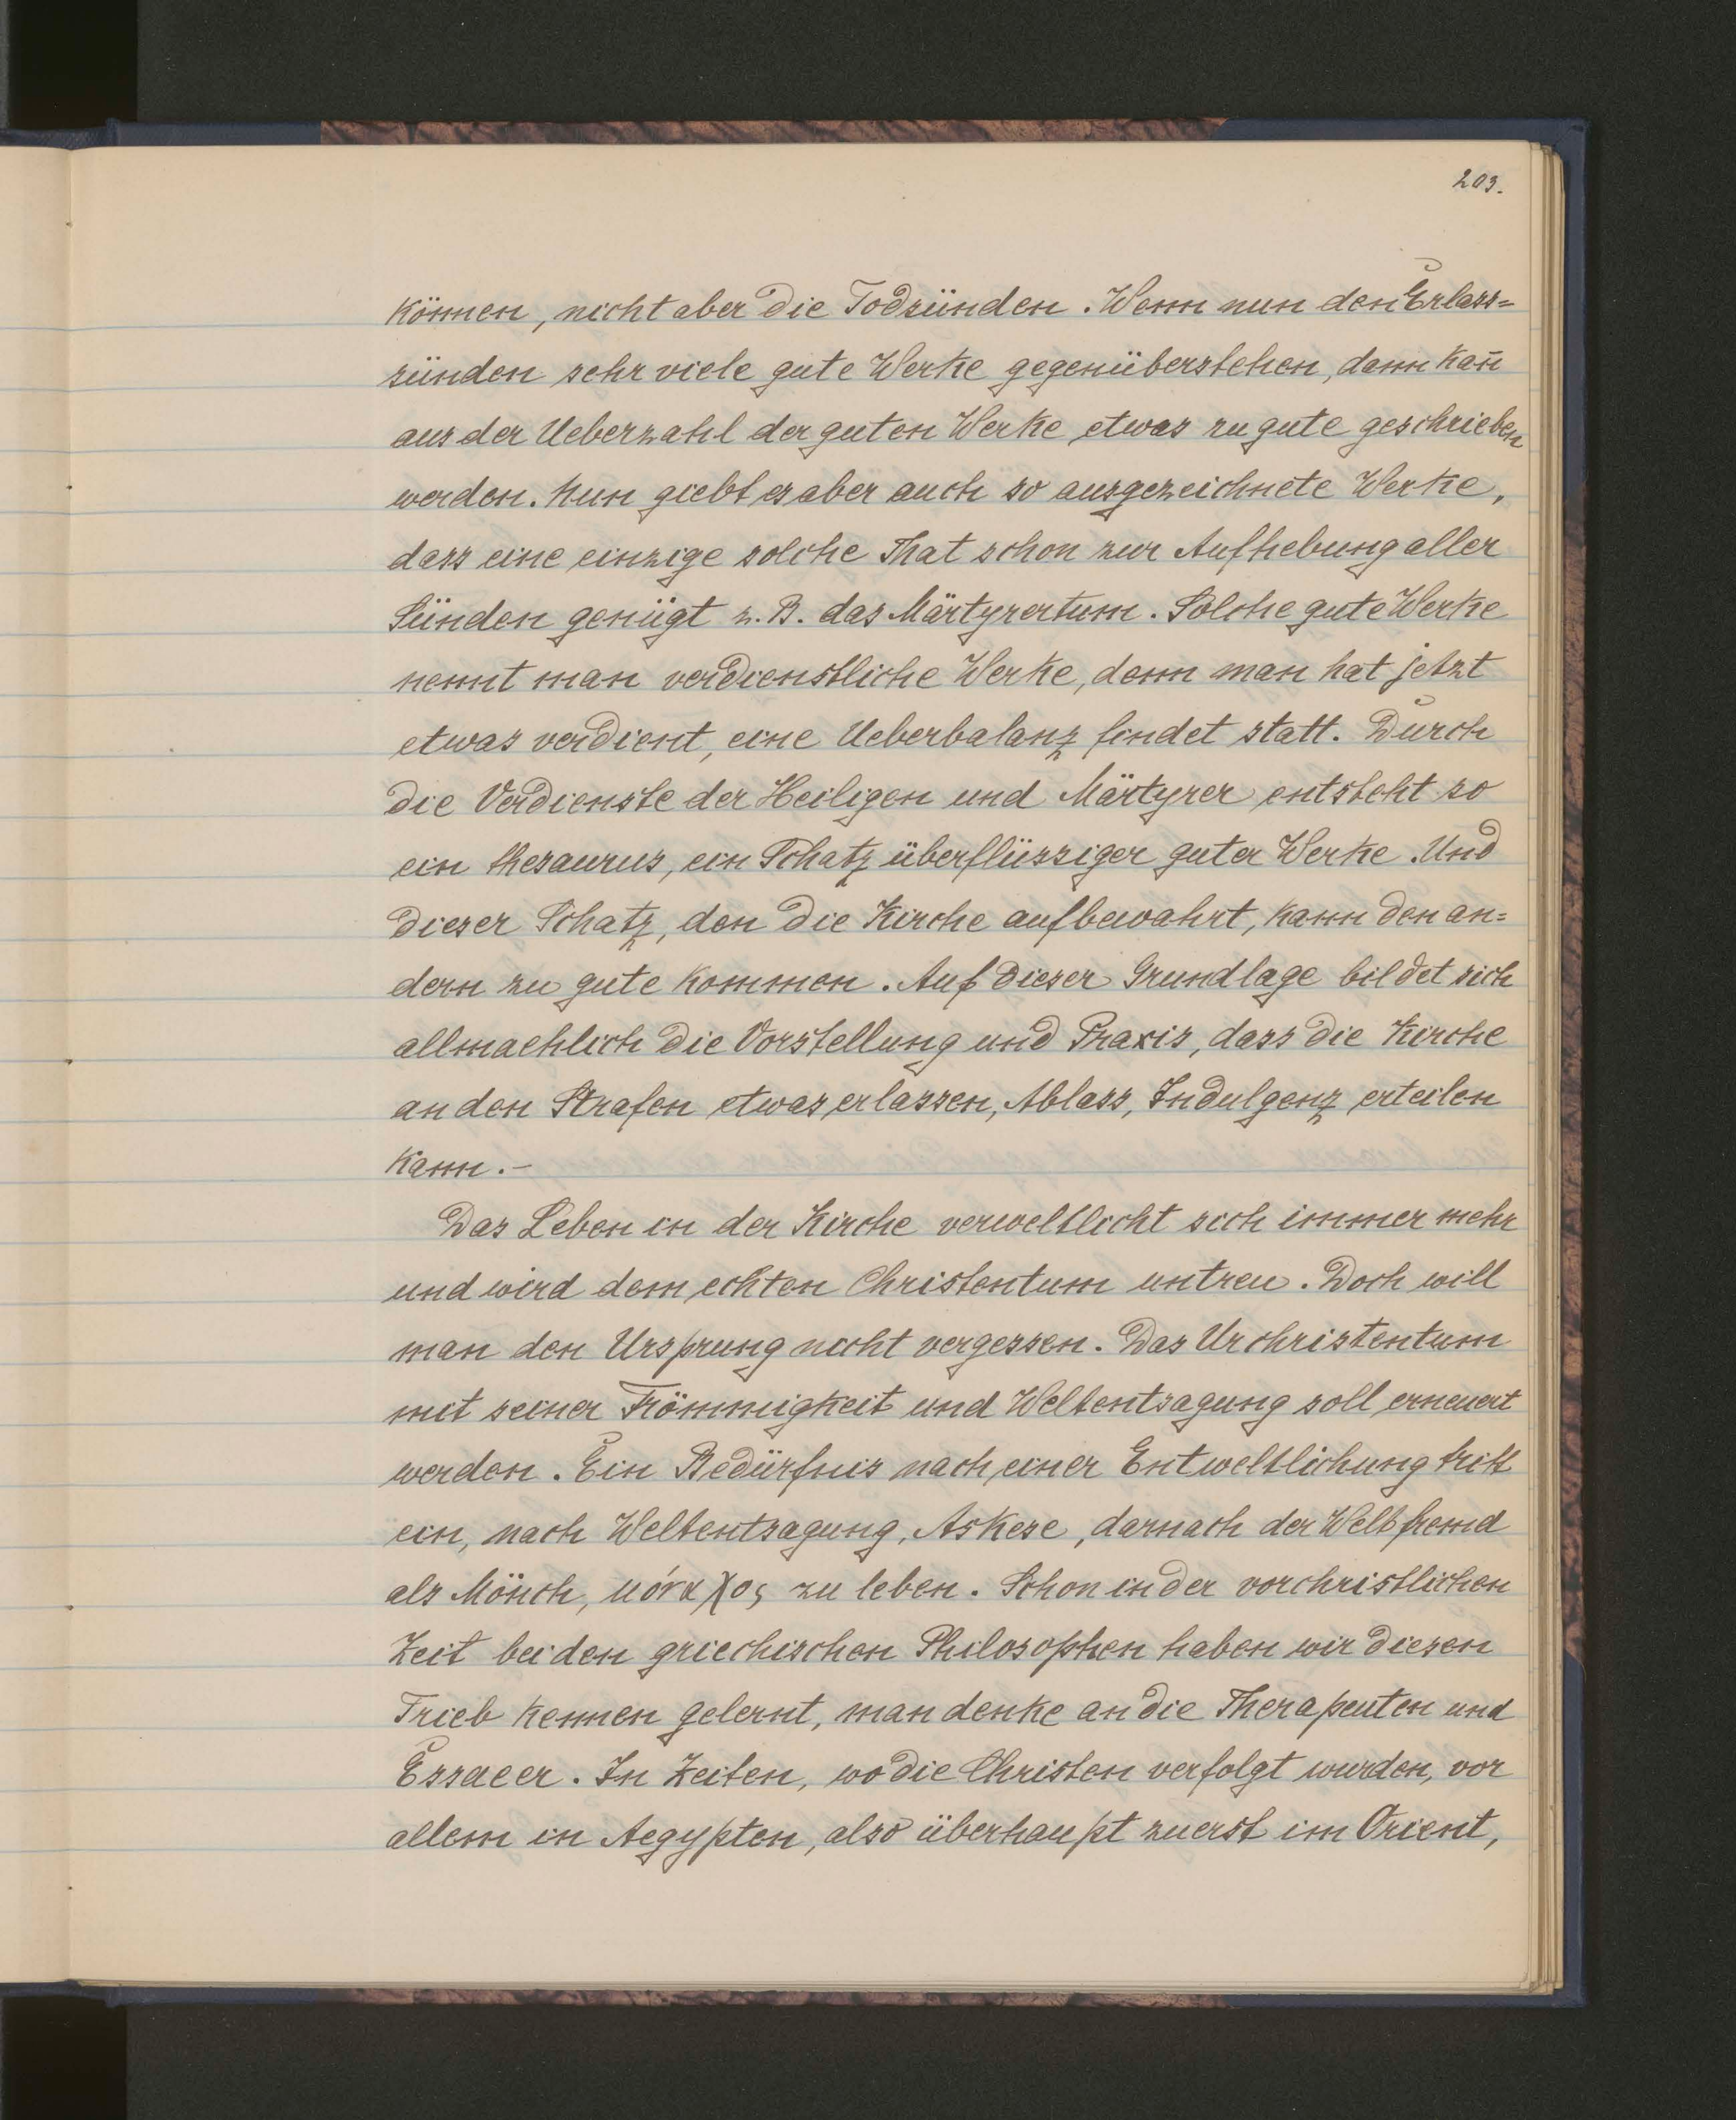 203.
können, nicht aber die Todsünden. Wenn nun den Erlass=
sünden sehr viele gute Werke gegenüberstehen, dann kan̄
aus der Ueberzahl der guten Werke etwas zu gute geschrieben
werden. Nun giebt es aber auch so ausgezeichnete Werke,
dass eine einzige solche That schon zur Aufhebung aller
Sünden genügt z. B. das Märtyrertum. Solche gute Werke
nennt man verdienstliche Werke, denn man hat jetzt
etwas verdient, eine Ueberbalanz findet statt. Durch
die Verdienste der Heiligen und Märtyrer entsteht so
ein thesaurus, ein Schatz überflüssiger guter Werke. Und
dieser Schatz, den die Kirche aufbewahrt, kann den an=
dern zu gute kommen. Auf dieser Grundlage bildet sich
allmaehlich die Vorstellung und Praxis, dass die Kirche
an den Strafen etwas erlassen, Ablass, Indulgenz erteilen
kann. –
Das Leben in der Kirche verweltlicht sich immer mehr
und wird dem echten Christentum untreu. Doch will
man den Ursprung nicht vergessen. Das Urchristentum
mit seiner Frömmigkeit und Weltentsagung soll erneuert
werden. Ein Bedürfnis nach einer Entweltlichung tritt
ein, nach Weltentsagung, Askese, darnach der Welt fremd
als Mönch, μόναχος zu leben. Schon in der vorchristlichen
Zeit bei den griechischen Philosophen haben wir diesen
Trieb kennen gelernt, man denke an die Therapeuten und
Essaeer. In Zeiten, wo die Christen verfolgt wurden, vor
allem in Aegypten, also überhaupt zuerst im Orient,